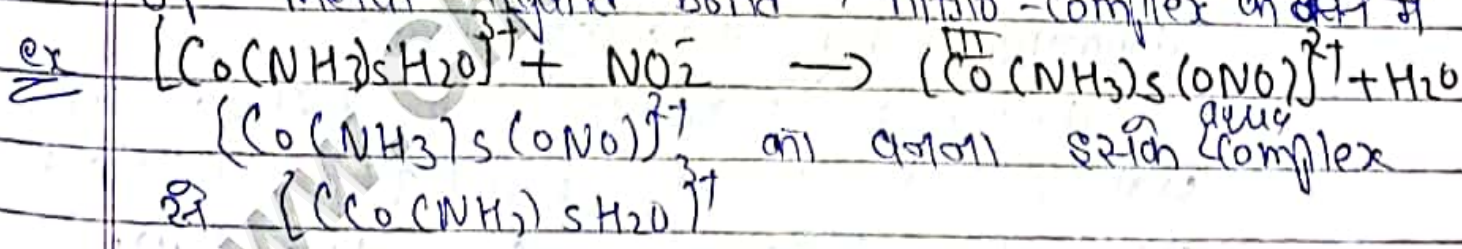 metal ligand bond nitrito-complex के बनने में
ex [Co(NH3)5H2O]3+ + NO2- → [CoIII(NH3)5(ONO)]2+ + H2O
[Co(NH3)5(ONO)]2+ का बनना इसके aqua complex
से [(Co(NH3)5H2O]3+